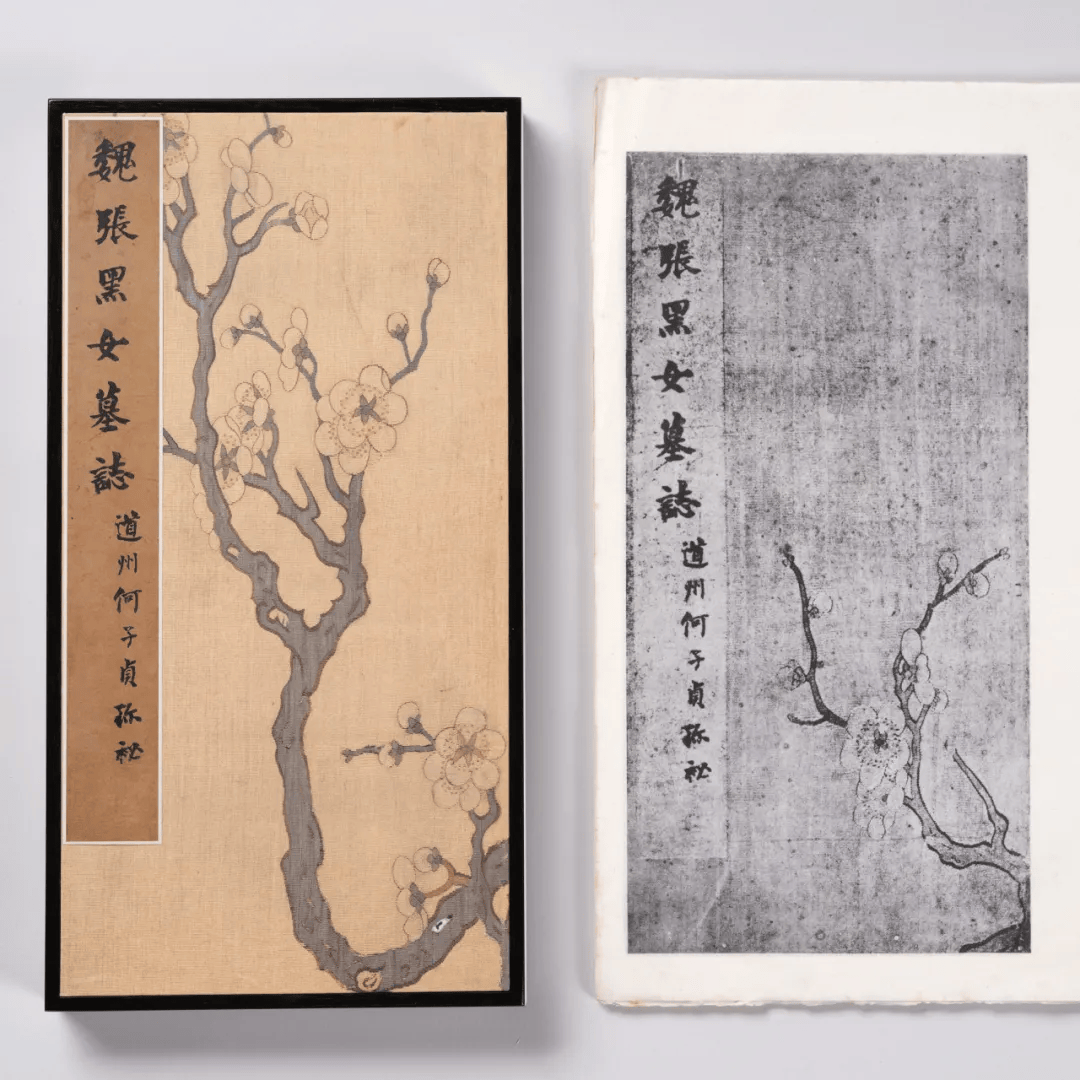 魏張黑女墓誌
道州何子貞珎祕
魏張黑女墓誌
道州何子貞珎祕